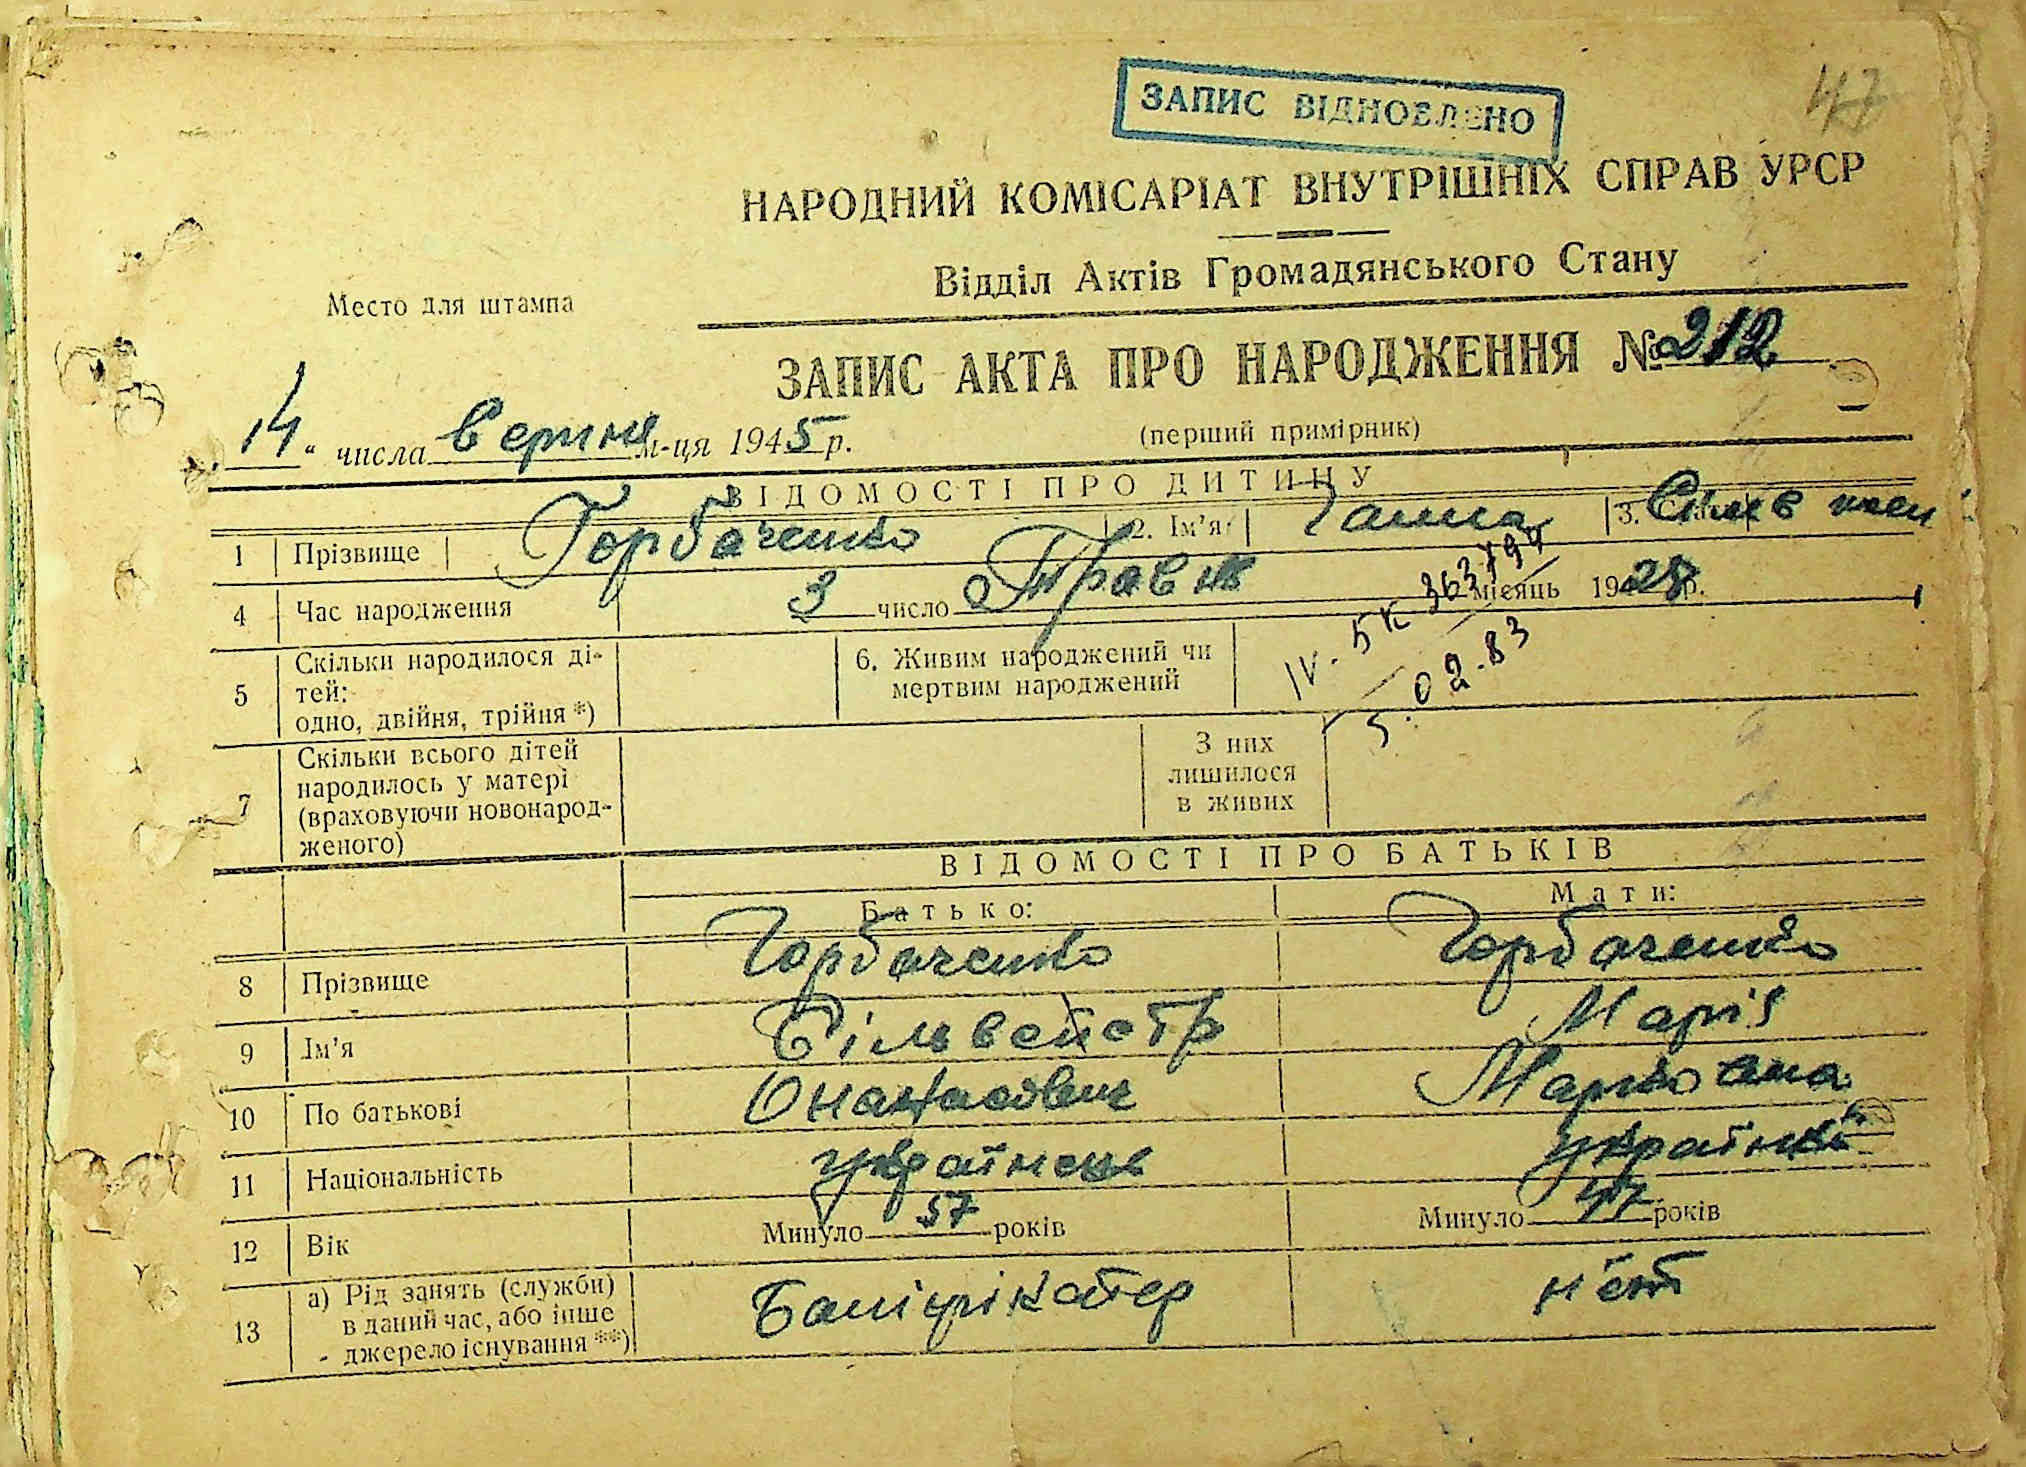 ЗАПИС ВІДНОВЛЕНО
47
НАРОДНИЙ КОМІСАРІАТ ВНУТРІШНІХ СПРАВ УРСР
Відділ Актів Громадянського Стану
Место для штампа
ЗАПИС АКТА ПРО НАРОДЖЕННЯ № 212
(перший примірник)
14 " числа серпня м-ця 1945 р.
ВІДОМОСТІ ПРО ДИТИНУ
1 Прізвище Горбаченко 2. Ім'я Ганна 3.
4 Час народження 3 число Травня місяць 1928 р.
5 Скільки народилося ді-
тей:
одно, двійня, трійня *)
6. Живим народжений чи
мертвим народжений
IV-БК 363194
5.02.83
7 Скільки всього дітей
народилось у матері
(враховуючи новонарод-
женого)
З них
лишилося
в живих
ВІДОМОСТІ ПРО БАТЬКІВ
Батько: Мати:
8 Прізвище Горбаченко Горбаченко
9 Ім'я Сільвейстр Марія
10 По батькові Марковна
11 Національність українець українка
12 Вік Минуло 57 років Минуло 47 років
13 а) Рід занять (служби)
в даний час, або інше
джерело існування **)
нет